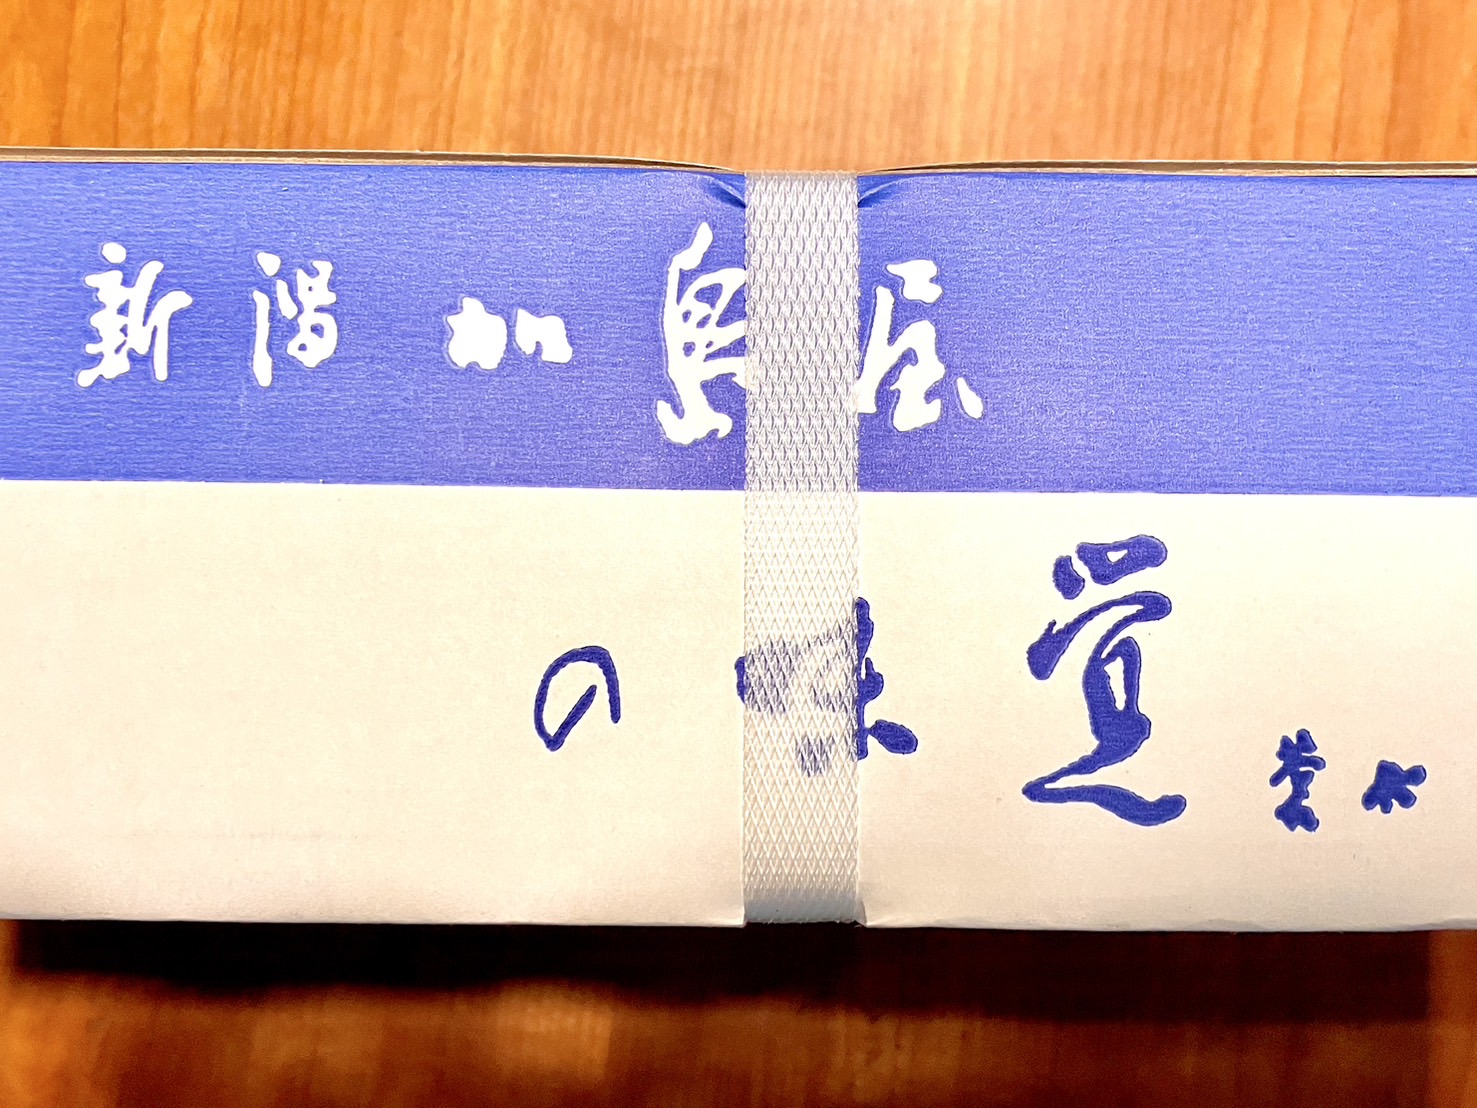 新潟加島屋
の味覚